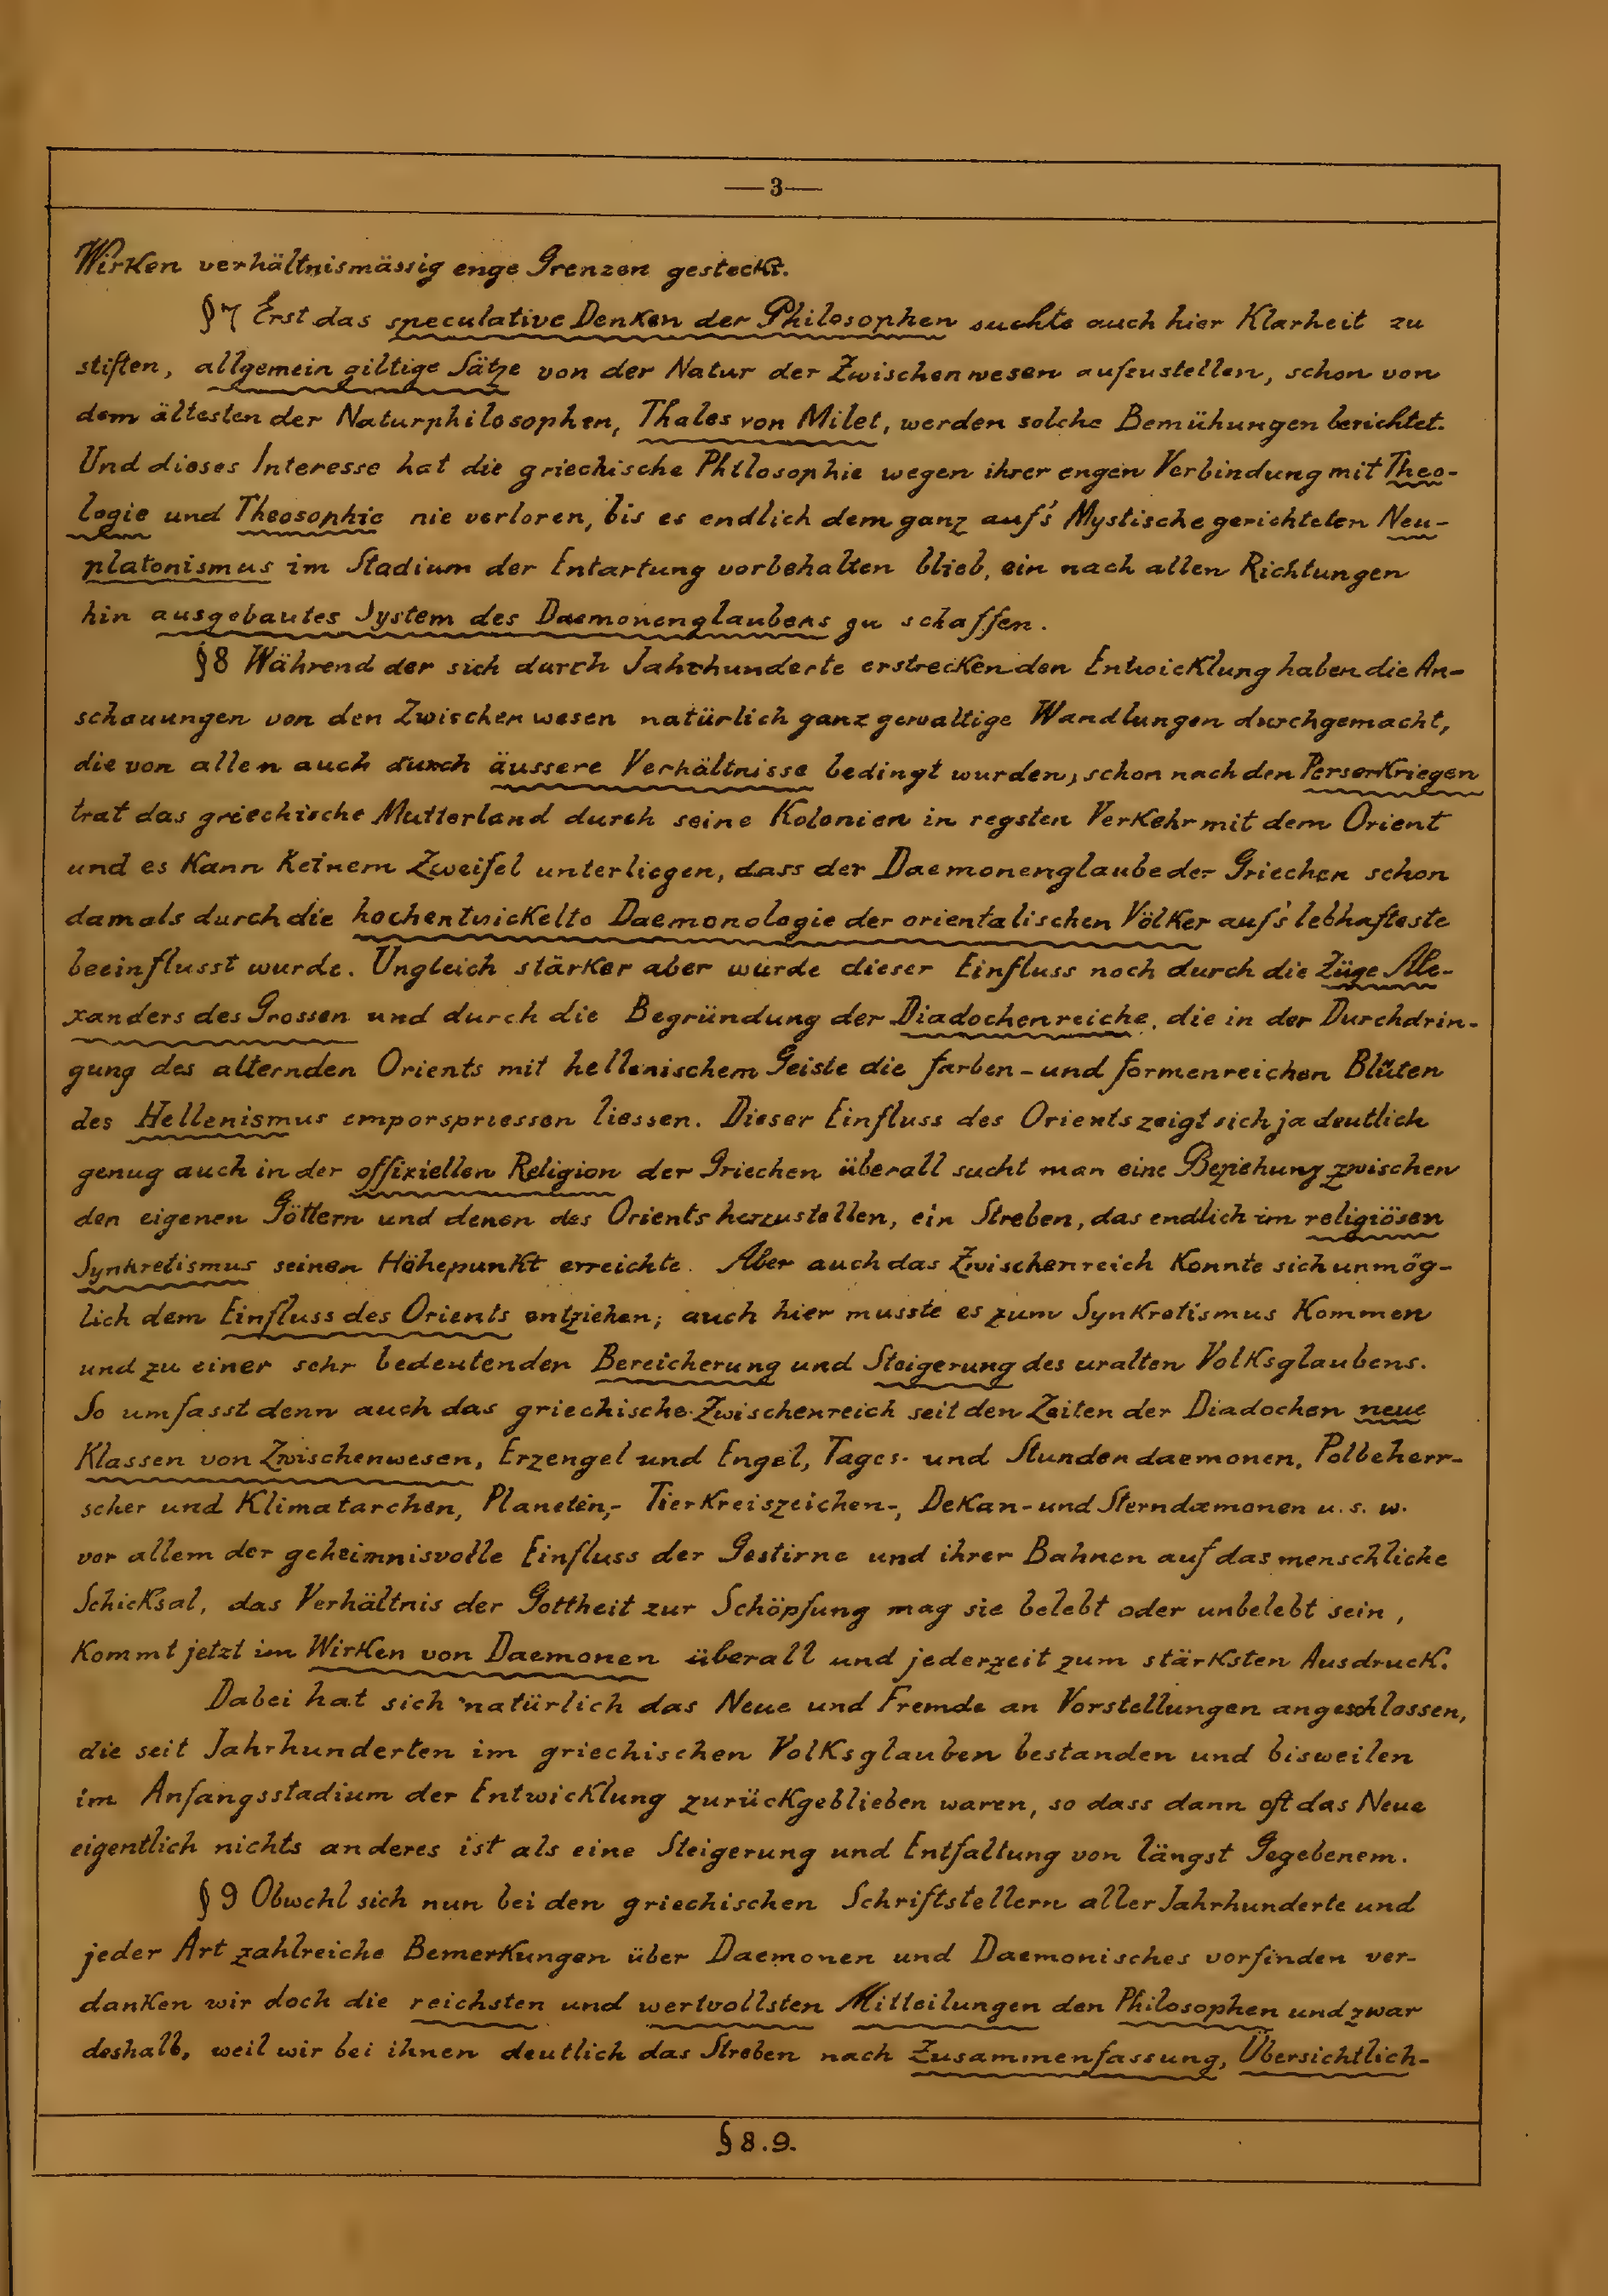 —3—
Wirken verhältnismässig enge Grenzen gesteckt.
§7 Erst das speculative Denken der Philosophen suchte auch hier Klarheit zu
stiften, allgemein giltige Sätze von der Natur der Zwischenwesen aufzustellen, schon von
dem ältesten der Naturphilosophen, Thales von Milet, werden solche Bemühungen berichtet.
Und dieses Interesse hat die griechische Philosophie wegen ihrer engen Verbindung mit Theo-
logie und Theosophie nie verloren, bis es endlich dem ganz auf's Mystische gerichteten Neu-
platonismus im Stadium der Entartung vorbehalten blieb, ein nach allen Richtungen
hin ausgebautes System des Daemonenglaubens zu schaffen.
§8 Während der sich durch Jahrhunderte erstreckenden Entwicklung haben die An-
schauungen von den Zwischenwesen natürlich ganz gewaltige Wandlungen durchgemacht,
die von allen auch durch äussere Verhältnisse bedingt wurden, schon nach den Perserkriegen
trat das griechische Mutterland durch seine Kolonien in regsten Verkehr mit dem Orient
und es kann keinem Zweifel unterliegen, dass der Daemonenglaube der Griechen schon
damals durch die hochentwickelte Daemonologie der orientalischen Völker auf's lebhafteste
beeinflusst wurde. Ungleich stärker aber wurde dieser Einfluss noch durch die Züge Ale-
xanders des Grossen und durch die Begründung der Diadochenreiche, die in der Durchdrin-
gung des alternden Orients mit hellenischem Geiste die farben- und formenreichen Blüten
des Hellenismus emporspriessen liessen. Dieser Einfluss des Orients zeigt sich ja deutlich
genug auch in der offiziellen Religion der Griechen überall sucht man eine Beziehung zwischen
den eigenen Göttern und denen des Orients herzustellen, ein Streben, das endlich im religiösen
Synkretismus seinen Höhepunkt erreichte. Aber auch das Zwischenreich konnte sich unmög-
lich dem Einfluss des Orients entziehen; auch hier musste es zum Synkretismus kommen
und zu einer sehr bedeutenden Bereicherung und Steigerung des uralten Volksglaubens.
So umfasst denn auch das griechische Zwischenreich seit den Zeiten der Diadochen neue
Klassen von Zwischenwesen, Erzengel und Engel, Tages- und Stundendaemonen, Polbeherr-
scher und Klimatarchen, Planeten,- Tierkreiszeichen-, Dekan- und Sterndæmonen u. s. w.
vor allem der geheimnisvolle Einfluss der Gestirne und ihrer Bahnen auf das menschliche
Schicksal, das Verhältnis der Gottheit zur Schöpfung mag sie belebt oder unbelebt sein,
kommt jetzt im Wirken von Daemonen überall und jederzeit zum stärksten Ausdruck.
Dabei hat sich natürlich das Neue und Fremde an Vorstellungen angeschlossen,
die seit Jahrhunderten im griechischen Volksglauben bestanden und bisweilen
im Anfangsstadium der Entwicklung zurückgeblieben waren, so dass dann oft das Neue
eigentlich nichts anderes ist als eine Steigerung und Entfaltung von längst Gegebenem.
§9 Obwohl sich nun bei den griechischen Schriftstellern aller Jahrhunderte und
jeder Art zahlreiche Bemerkungen über Daemonen und Daemonisches vorfinden ver-
danken wir doch die reichsten und wertvollsten Mitteilungen den Philosophen und zwar
deshalb, weil wir bei ihnen deutlich das Streben nach Zusammenfassung, Übersichtlich-
§8.9.